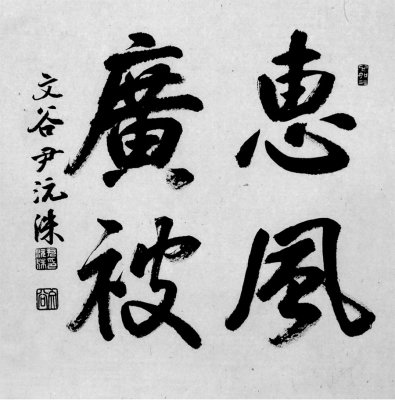 惠風
廣被
文谷尹沅洙